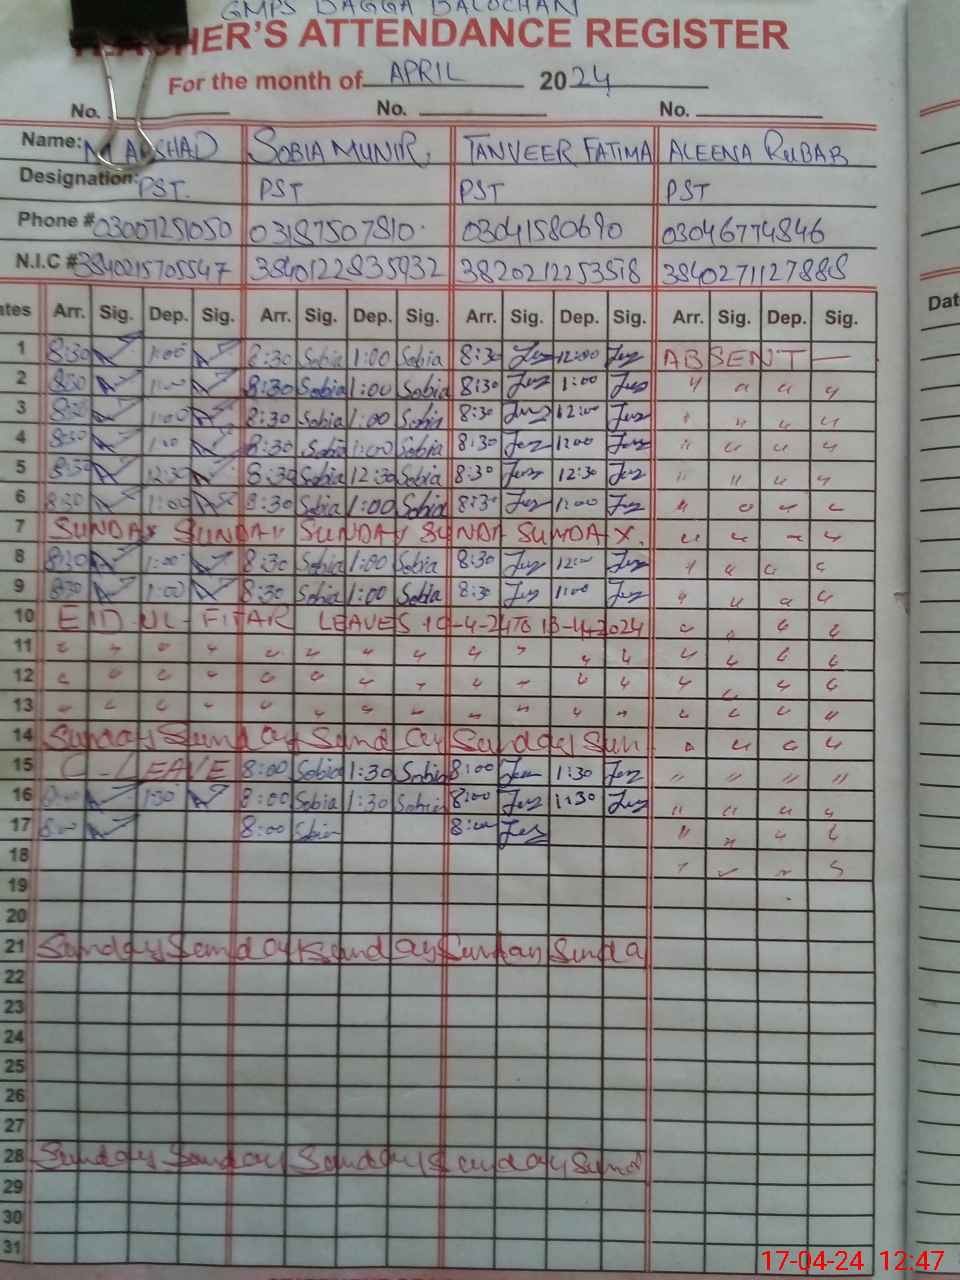 GMPS DAGGA BALOCHAN
TEACHER'S ATTENDANCE REGISTER
For the month of APRIL 2024
No. No. No.
Name: M ARSHAD SOBIA MUNIR, TANVEER FATIMA ALEENA RUBAB
Designation: PST. PST PST PST
Phone # 03007251050 03187507810. 03041580690 03046774846
N.I.C # 3840215705547 3840122835932 3820212253518 3840271127888
ates Arr. Sig. Dep. Sig. Arr. Sig. Dep. Sig. Arr. Sig. Dep. Sig. Arr. Sig. Dep. Sig. Dat
1 8:30 1:00 8:30 Sobia 1:00 Sobia 8:30 12:00 ABSENT —
2 8:30 1:00 8:30 Sobia 1:00 Sobia 8:30 1:00 " " " "
3 8:30 1:00 8:30 Sobia 1:00 Sobia 8:30 12:00 " " " "
4 8:30 1:00 8:30 Sobia 1:00 Sobia 8:30 1:00 " " " "
5 8:30 12:30 8:30 Sobia 12:30 Sobia 8:30 12:30 " " " "
6 8:30 1:00 8:30 Sobia 1:00 Sobia 8:30 1:00 " " " "
7 SUNDAY SUNDAY SUNDAY SUNDA SUNDAY. " " " "
8 8:30 1:00 8:30 Sobia 1:00 Sobia 8:30 12:00 " " " "
9 8:30 1:00 8:30 Sobia 1:00 Sobia 8:30 1:00 " " " "
10 EID-UL-FITAR LEAVES 10-4-24 TO 13-4-2024 " " " "
11 " " " " " " " " " " " " " " " "
12 " " " " " " " " " " " " " " " "
13 " " " " " " " " " " " " " " " "
14 Sunday Sunday Sunday Sunday Sun " " " "
15 C-LEAVE 8:00 Sobia 1:30 Sobia 8:00 1:30 " " " "
16 8:00 1:30 8:00 Sobia 1:30 Sobia 8:00 1:30 " " " "
17 8:00 8:00 Sobia 8:00 " " " "
18 " " " "
19
20
21 Sunday Sunday Sunday Sunday Sunda
22
23
24
25
26
27
28 Sunday Sunday Sunday Sunday Sund
29
30
31
17-04-24 12:47